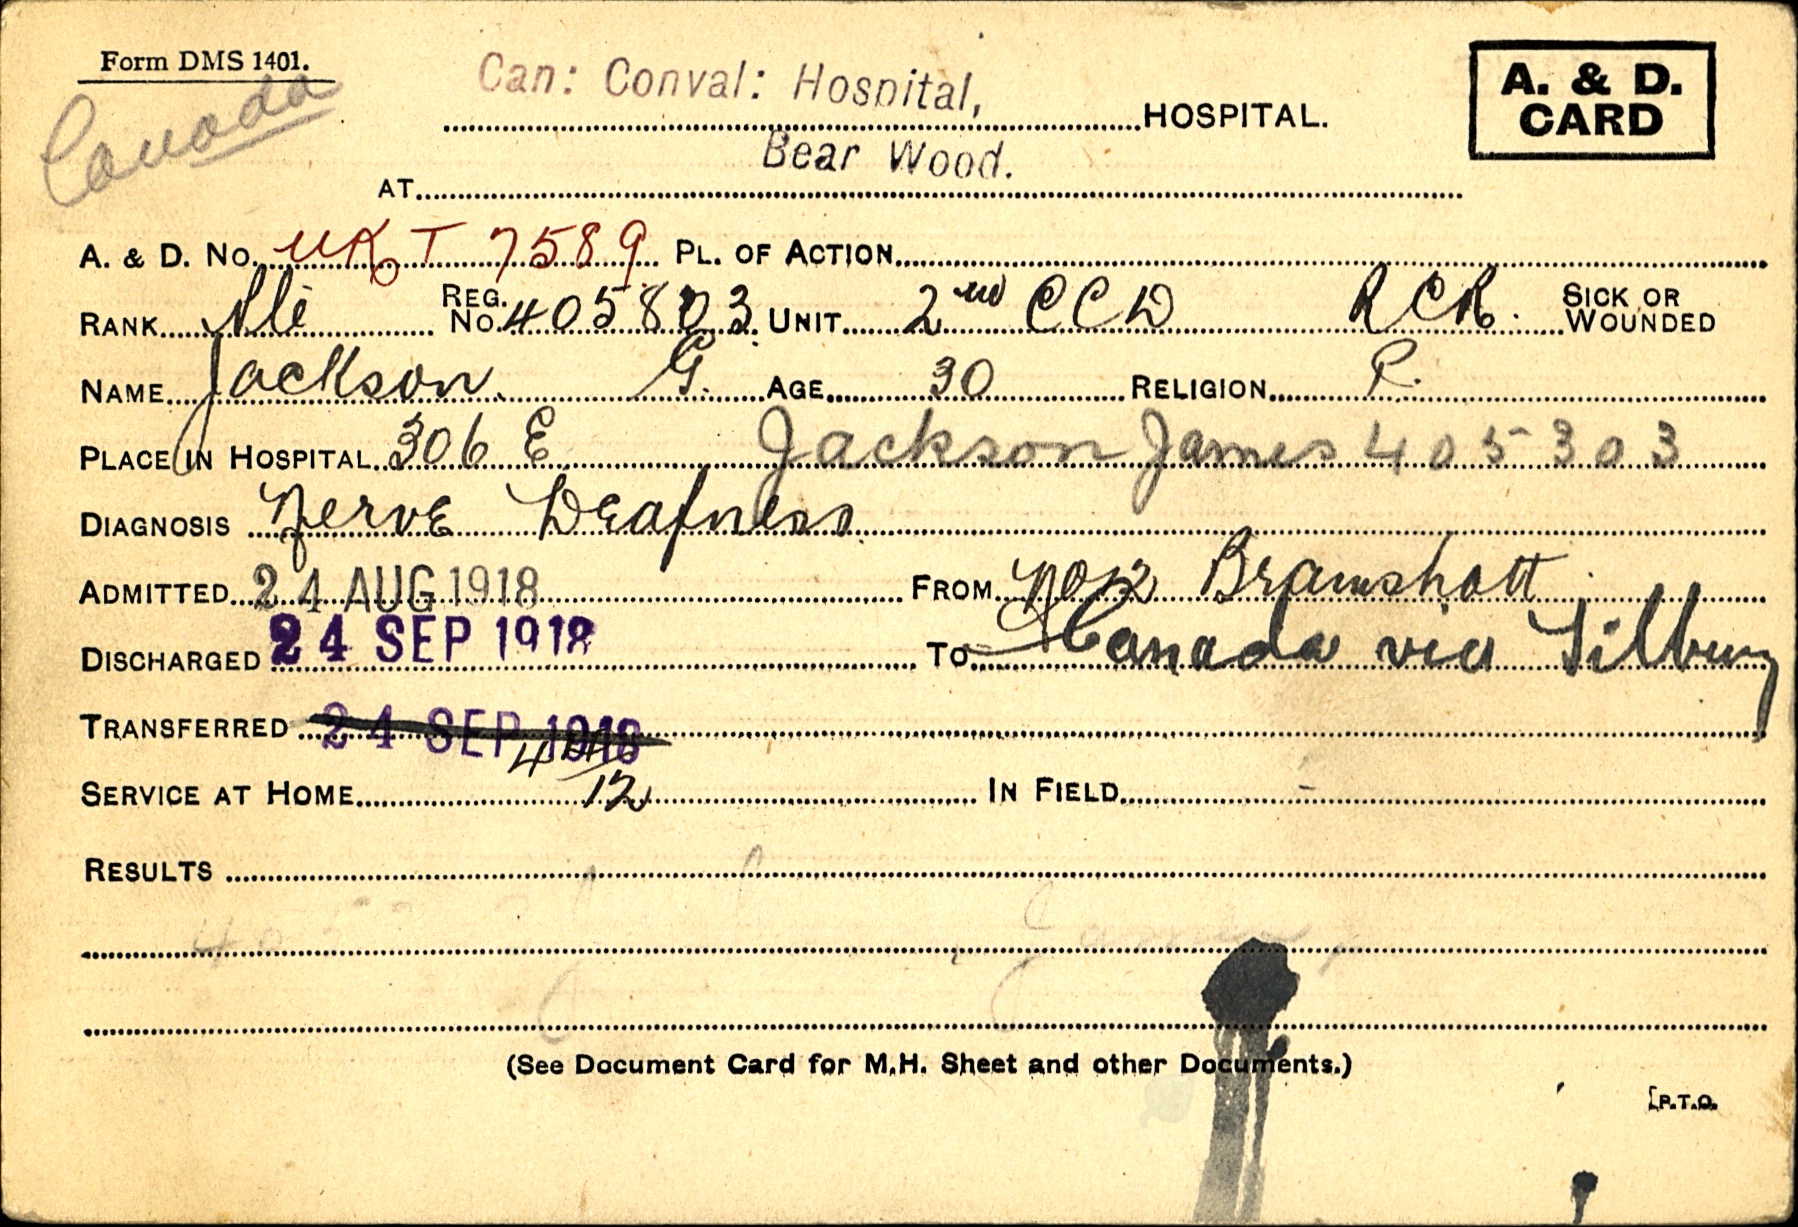 Form DMS 1401.
Canada
Can: Conval: Hospital, HOSPITAL.
A. & D. CARD
AT Bear Wood.
A. & D. No. UK T 7589 PL. OF ACTION
RANK Pte REG. No. 405803 UNIT 2nd CCD RCR. SICK OR WOUNDED
NAME Jackson. G. AGE 30 RELIGION P.
PLACE IN HOSPITAL 306 E Jackson James 405303
DIAGNOSIS Nerve Deafness
ADMITTED 24 AUG 1918 FROM No 12 Bramshott
DISCHARGED 24 SEP 1918 TO Canada via Tilbury
TRANSFERRED 24 SEP 1918
SERVICE AT HOME 4 12 IN FIELD -
RESULTS
(See Document Card for M.H. Sheet and other Documents.)
[P.T.O.